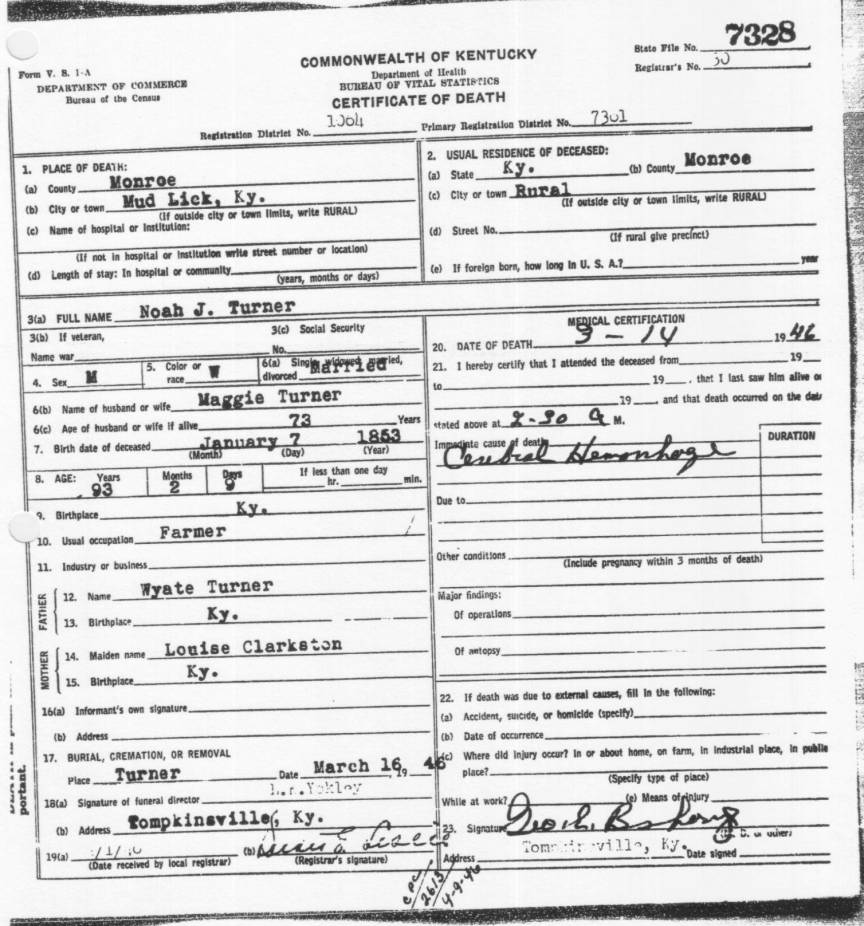 7328
State File No.
Registrar's No. 30
Form V. S. 1-A
DEPARTMENT OF COMMERCE
Bureau of the Census
COMMONWEALTH OF KENTUCKY
Department of Health
BUREAU OF VITAL STATISTICS
CERTIFICATE OF DEATH
Registration District No. 1004 Primary Registration District No. 7301
1. PLACE OF DEATH:
(a) County Monroe
(b) City or town Mud Lick, Ky.
(If outside city or town limits, write RURAL)
(c) Name of hospital or institution:
(If not in hospital or institution write street number or location)
(d) Length of stay: In hospital or community
(years, months or days)
2. USUAL RESIDENCE OF DECEASED:
(a) State Ky. (b) County Monroe
(c) City or town Rural
(If outside city or town limits, write RURAL)
(d) Street No.
(If rural give precinct)
(e) If foreign born, how long in U. S. A.? year
3(a) FULL NAME Noah J. Turner
3(b) If veteran, 3(c) Social Security
Name war No.
4. Sex M 5. Color or race W 6(a) Single, widowed, married, divorced Married
6(b) Name of husband or wife Maggie Turner
6(c) Age of husband or wife if alive 73 Years
7. Birth date of deceased January 7 1853
(Month) (Day) (Year)
8. AGE: Years Months Days If less than one day
93 2 hr. min.
9. Birthplace Ky.
10. Usual occupation Farmer
11. Industry or business
FATHER
12. Name Wyate Turner
13. Birthplace Ky.
MOTHER
14. Maiden name Louise Clarkston
15. Birthplace Ky.
16(a) Informant's own signature
(b) Address
17. BURIAL, CREMATION, OR REMOVAL
Place Turner Date March 16, 19 46
18(a) Signature of funeral director Yokley
(b) Address Tompkinsville, Ky.
19(a) (b)
(Date received by local registrar) (Registrar's signature)
MEDICAL CERTIFICATION
20. DATE OF DEATH 3-14 19 46
21. I hereby certify that I attended the deceased from 19
to 19 , that I last saw him alive on
19 , and that death occurred on the date
stated above at 2-30 A M.
Immediate cause of death DURATION
Cerebral Hemorrhage
Due to
Other conditions
(Include pregnancy within 3 months of death)
Major findings:
Of operations
Of autopsy
22. If death was due to external causes, fill in the following:
(a) Accident, suicide, or homicide (specify)
(b) Date of occurrence
(c) Where did injury occur? In or about home, on farm, in industrial place, in public
place?
(Specify type of place)
While at work? (e) Means of injury
23. Signature
(M. D. or other)
Address Tompkinsville, Ky. Date signed
portant.
2613
4-9-46